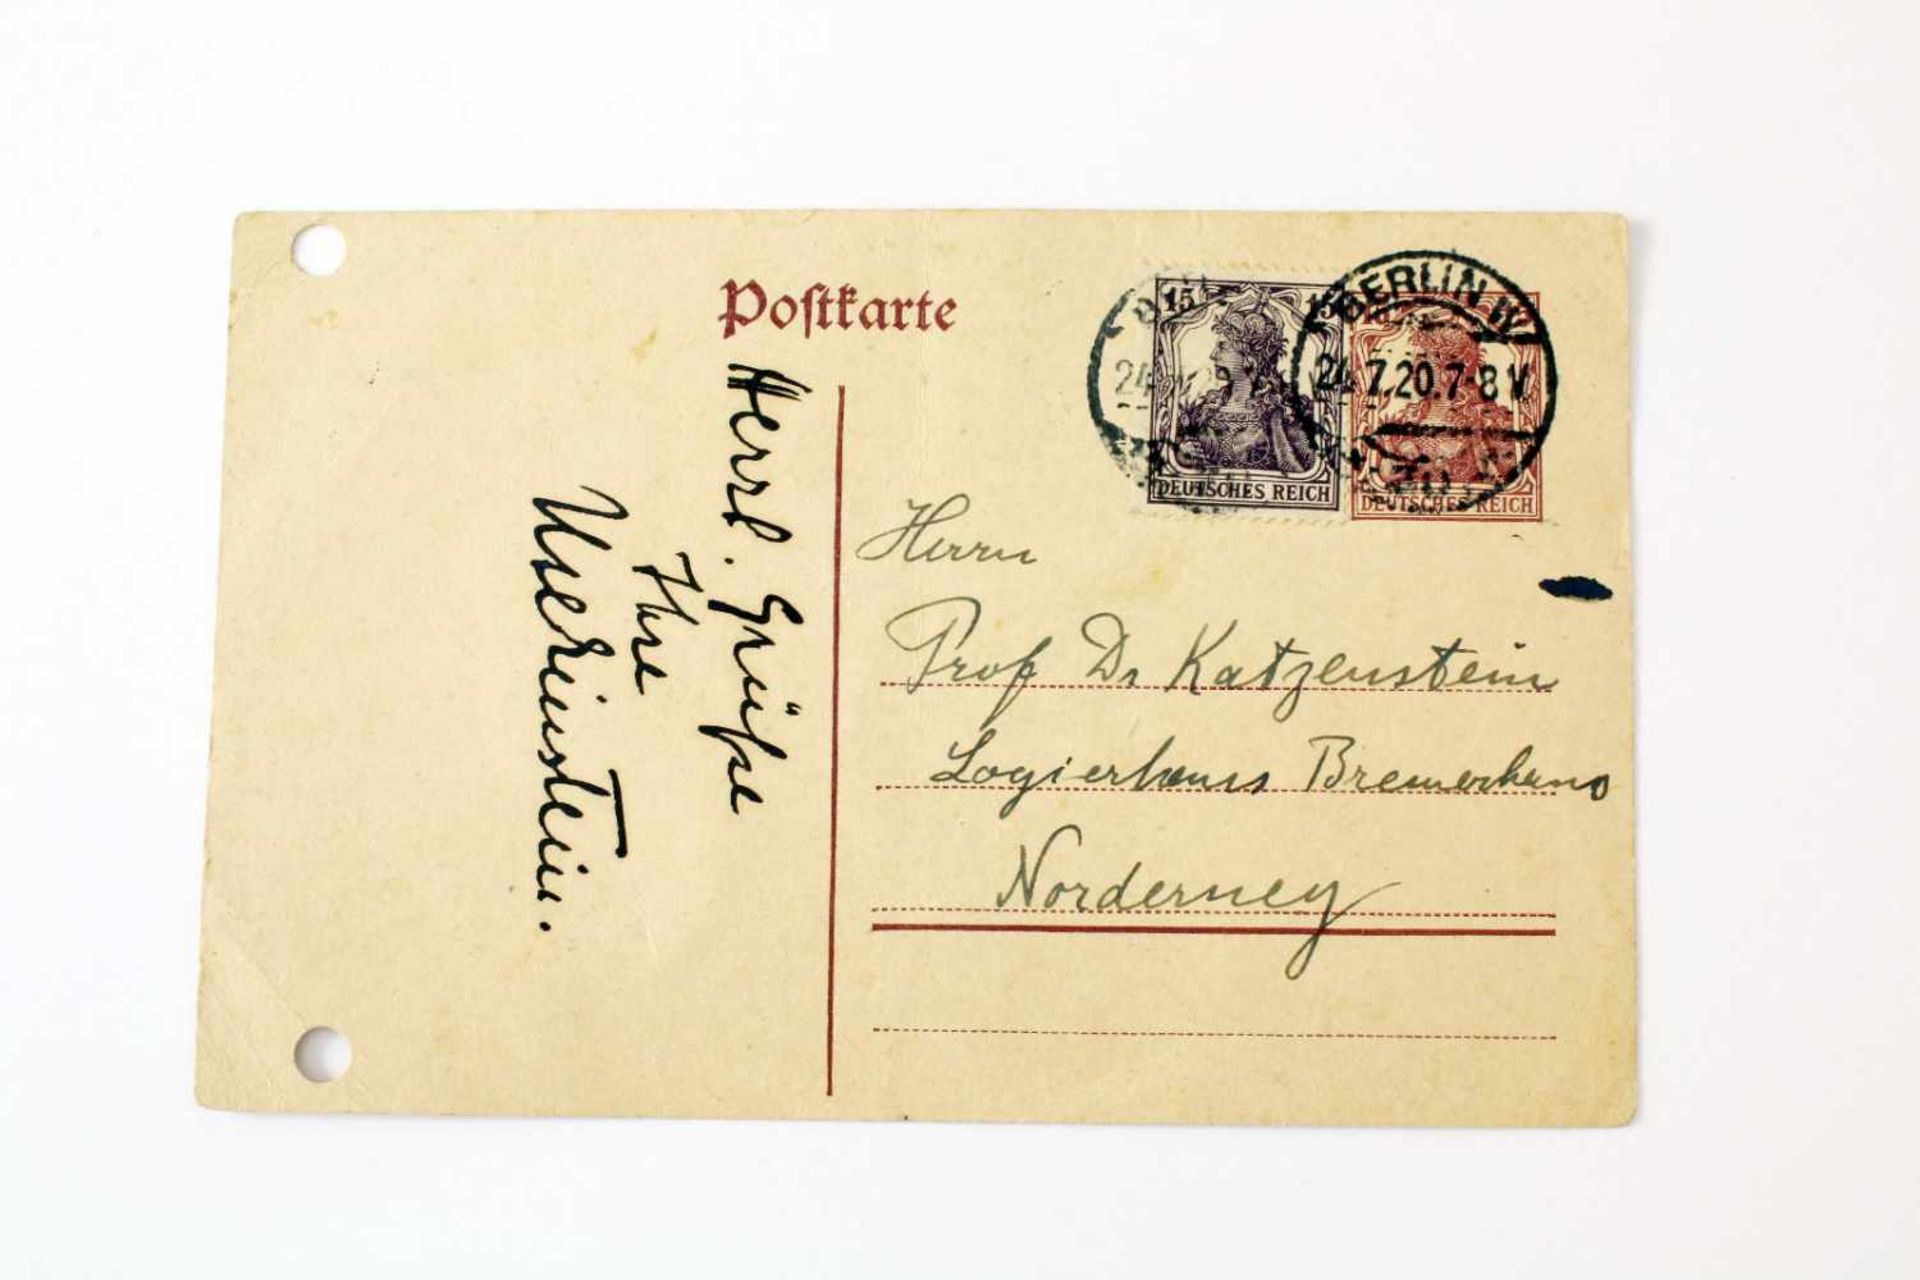 Postkarte
15 15
DEUTSCHES REICH
DEUTSCHES REICH
BERLIN W
24.7.20.7-8V
Herrn
Prof Dr Katzenstein
Logierhaus Bremerhaus
Norderney
Herzl. Grüße
Ihre
Einstein.